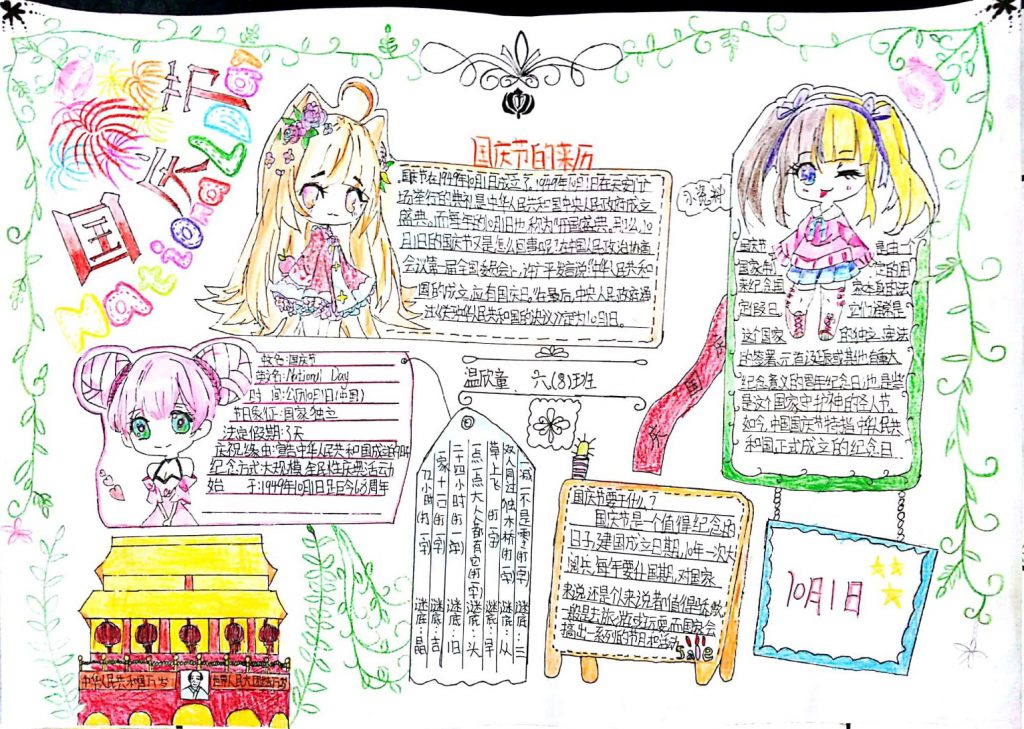 祝
欢
国
National Day
国庆节的来历
国庆节在1949年10月1日成立了,1949年10月1日在天安门广
场举行的典礼是中华人民共和国中央人民政府成立
盛典。而每年的10月1日也称为"开国盛典。那么,10
月1日的国庆节又是怎么回事呢?在中国人民政治协商
会议第一届全国委员会上,许广平发言说:"中华人民共和
国的成立,应有国庆日。"在最后,中央人民政府通
过《关于中华人民共和国的决议》定为10月1日。
小资料
国庆节 是由一个
国家制 定的用
来纪念国 家本身的法
定假日。 它们通常是
这个国家 的独立、宪法
的签署、元首诞辰或其他有重大
纪念意义的周年纪念日;也是些
是这个国家守护神的圣人节。
如今,中国国庆节特指中华人民共
和国正式成立的纪念日
节名:国庆节
英名:National Day
时 间:公历10月1日(中国)
节日象征:国家独立
法定假期:3天
庆祝缘由:宣告中华人民共和国成立的时
纪念方式:大规模全民性庆祝活动
始 于:1949年10月1日距今68周年
温欣童 六(8)班
一减一不是零(打一字) 谜底:三
双人同过独木桥(打一字) 谜底:从
草上飞(打一字) 谜底:早
一点一点大人人都有它(打一字) 谜底:头
二十四小时(打一字) 谜底:旧
一家十一口(打一字) 谜底:吉
72小时(打一字) 谜底:晶
国庆节要干什么?
国庆节是一个值得纪念的
日子,建国成立日期,10年一次大
阅兵,每年要什国期,对国家
来说还是个人来说都值得庆祝,
一般是去旅游或玩耍,而国家会
搞出一系列的节目和活动。
Sale
10月1日
中华人民共和国万岁
世界人民大团结万岁